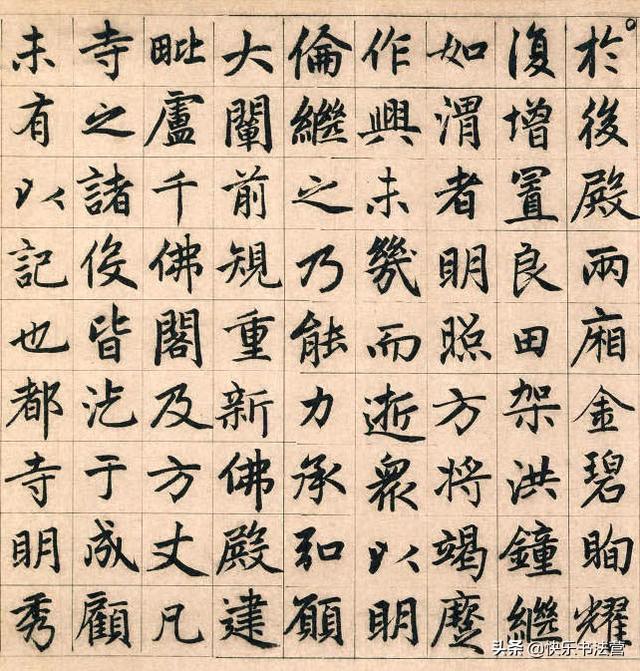 於後殿兩廂金碧眴耀
復增置良田架洪鐘繼
如渭者明照方將竭
作興未幾而逝衆以明
倫繼之乃能力承和願
大闡前規重新佛殿建
毗盧千佛閣及方丈凡
寺之諸役皆汔于成顧
未有以記也都寺明秀
头条 @快乐书法营